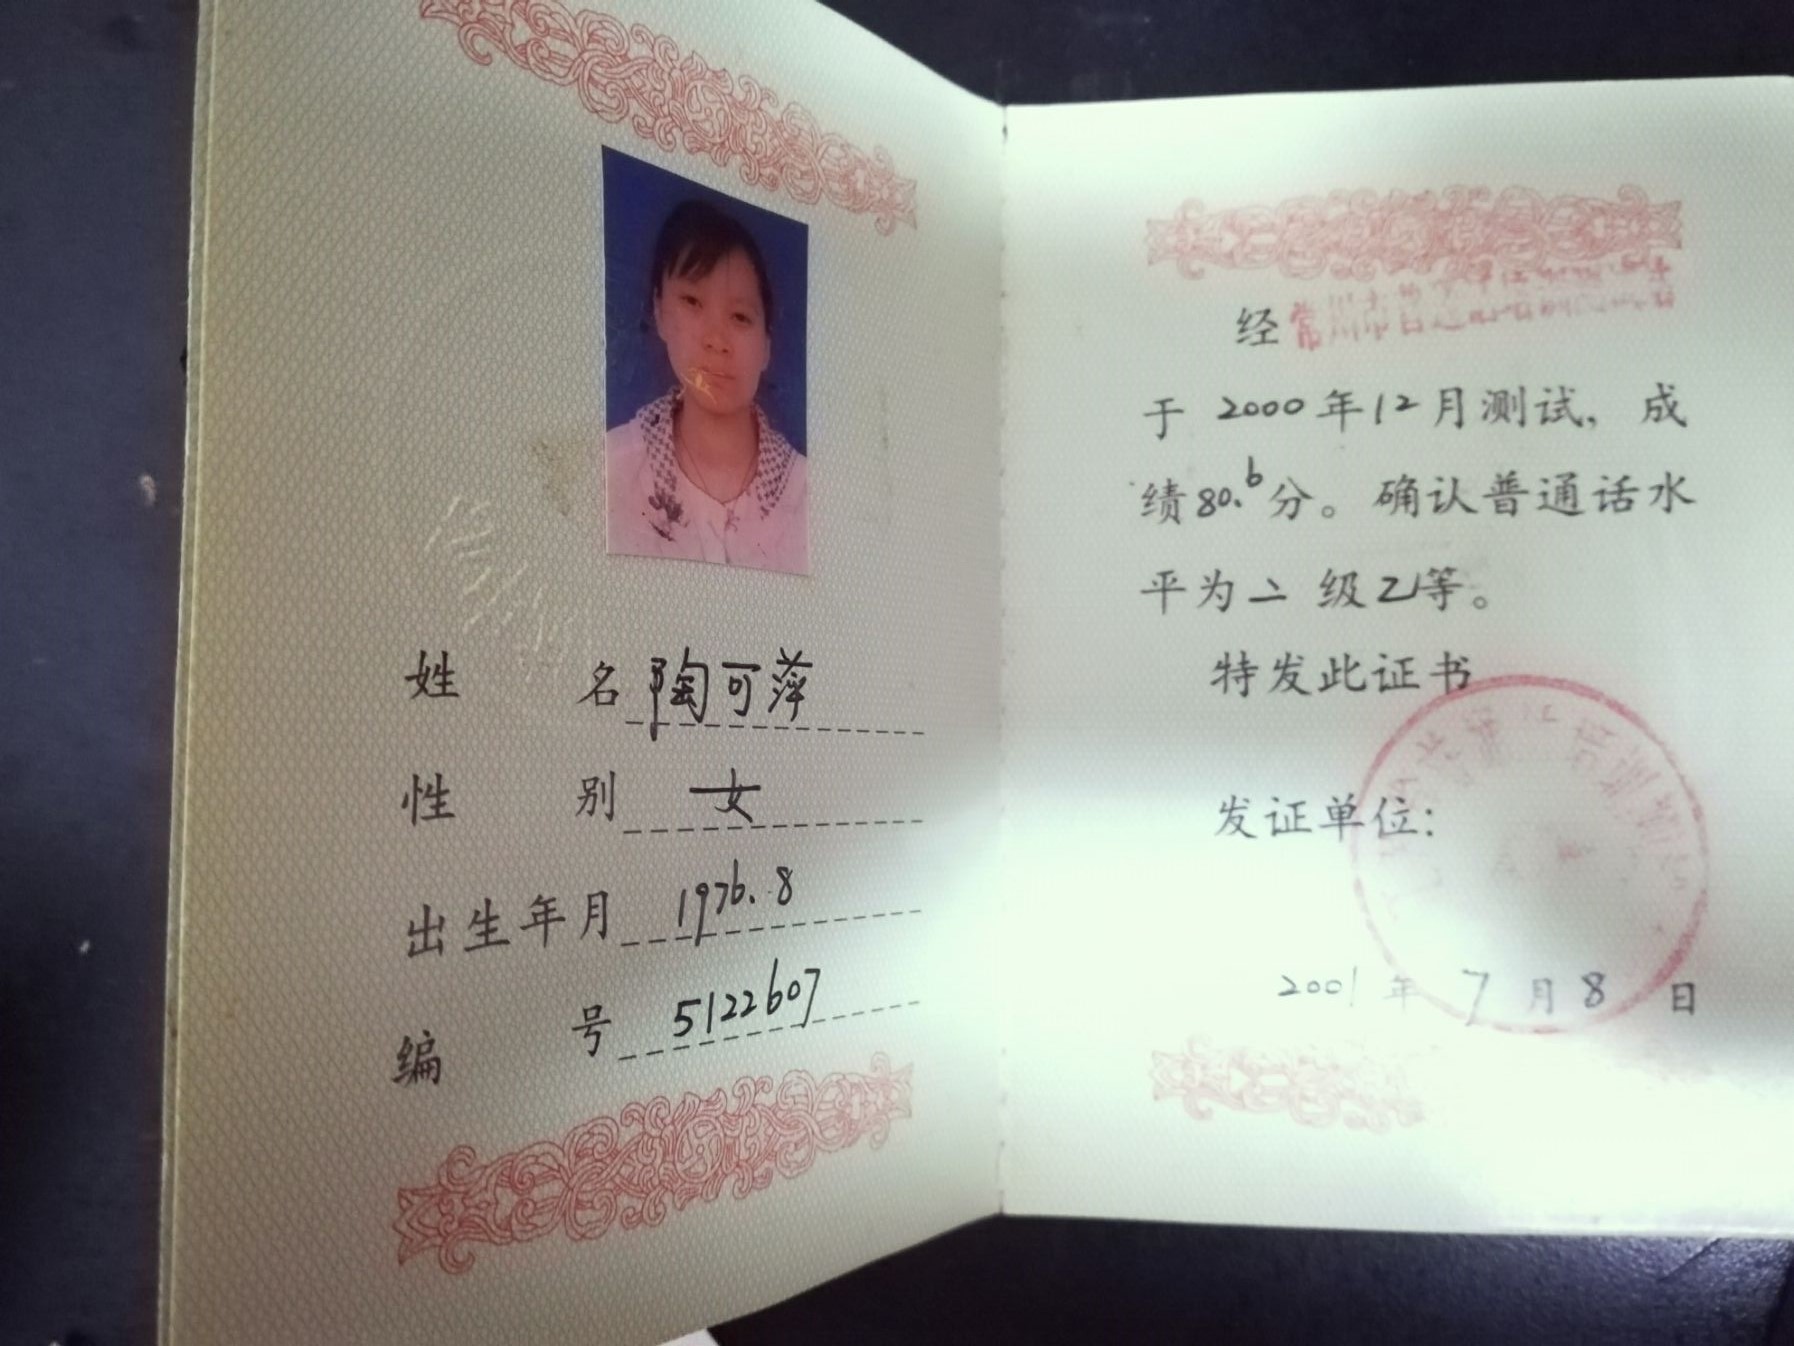 姓 名 陶可萍
性 别 女
出生年月 1976.8
编 号 5122607
经 常州市
于 2000 年 12 月测试，成
绩 80.6 分。确认普通话水
平为 二 级 乙 等。
特发此证书
发证单位：
2001 年 7 月 8 日